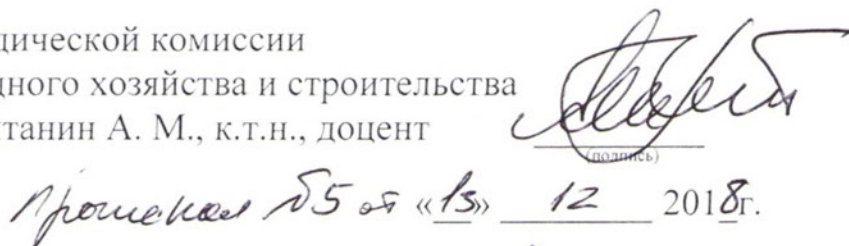 дической комиссии
дного хозяйства и строительства
танин А. М., к.т.н., доцент
(подпись)
Протокол №5 от «13» 12 2018г.